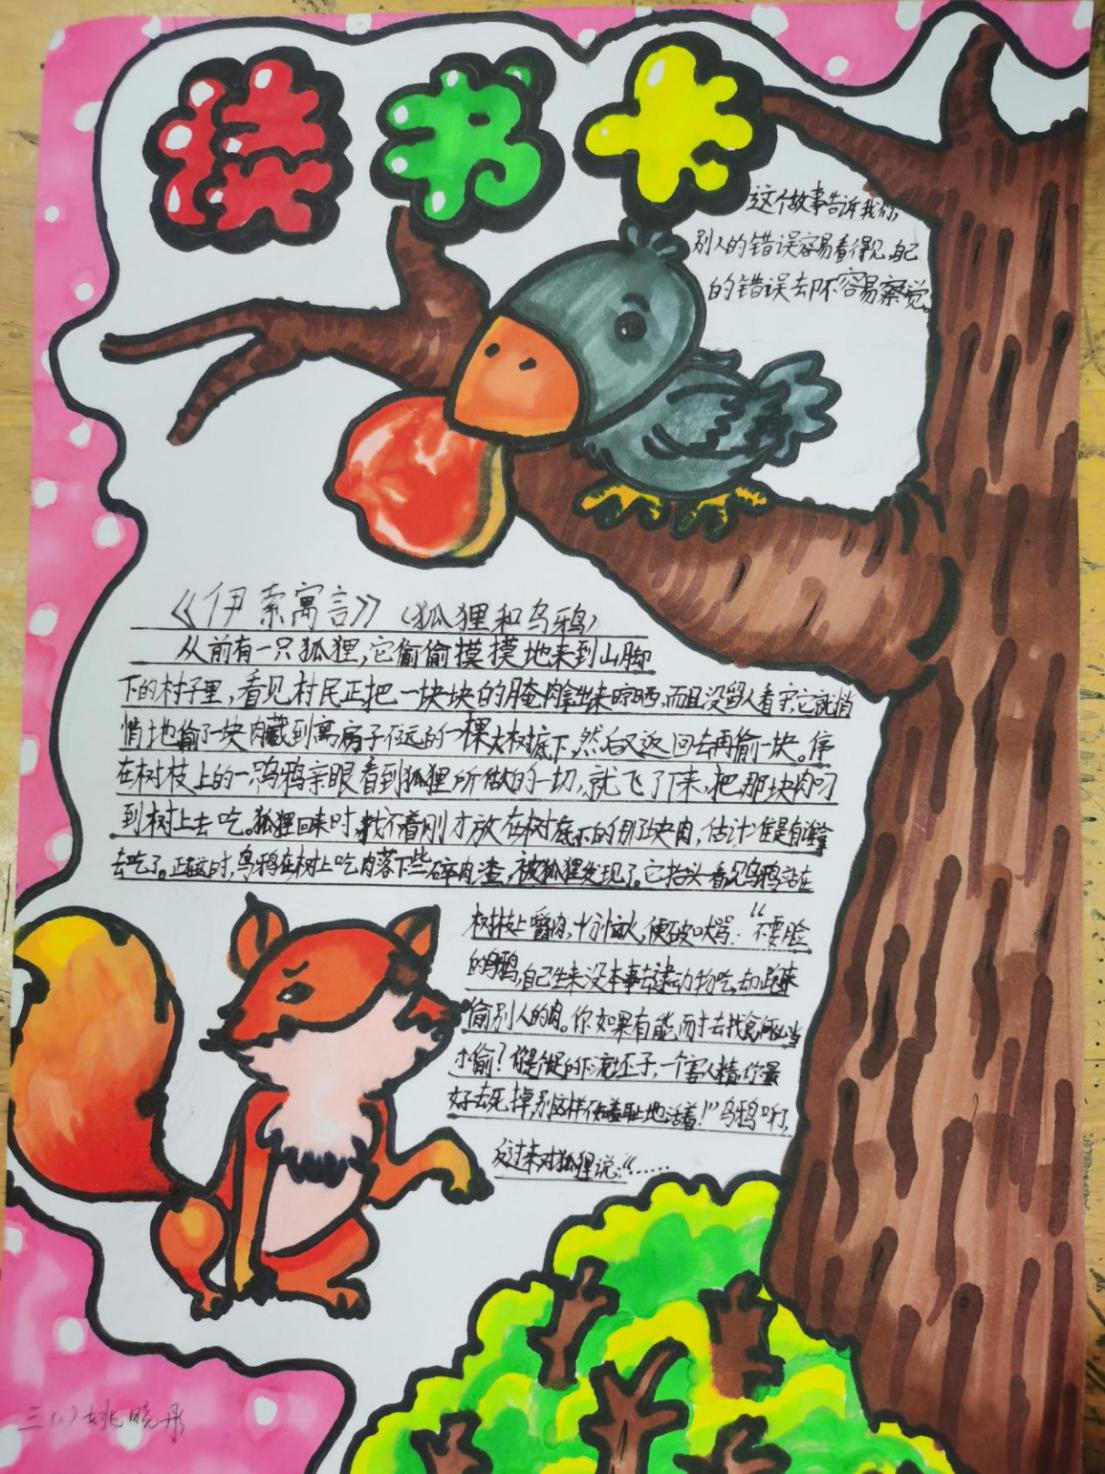 读书卡
这个故事告诉我们,
别人的错误容易看得见,自己
的错误却不容易察觉。
《伊索寓言》(狐狸和乌鸦)
从前有一只狐狸,它偷偷摸摸地来到山脚
下的村子里,看见村民正把一块块的腌肉拿出来晾晒,而且没留人看守,它就悄
悄地偷了一块肉藏到离房子不远的一棵大树底下,然后又返回去再偷一块。停
在树枝上的一只乌鸦亲眼看到狐狸所做的一切,就飞了下来,把那块肉叼
到树上去吃。狐狸回来时,找不着刚才放在树底下的那块肉,估计准是有谁拿
去吃了。正在这时,乌鸦在树上吃肉落下些碎肉渣,被狐狸发现了。它抬头看见乌鸦站在
树枝上嚼肉,十分恼火,便破口大骂:“不要脸
的乌鸦,自己生来没本事去逮动物吃,却跑来
偷别人的肉。你如果有能耐才去找食,何必当
小偷?你是个的下流坯子,一个害人精,你最
好去死掉,别这样不知羞耻地活着!”乌鸦听了,
反过来对狐狸说:“……
三(1)姚晓丹